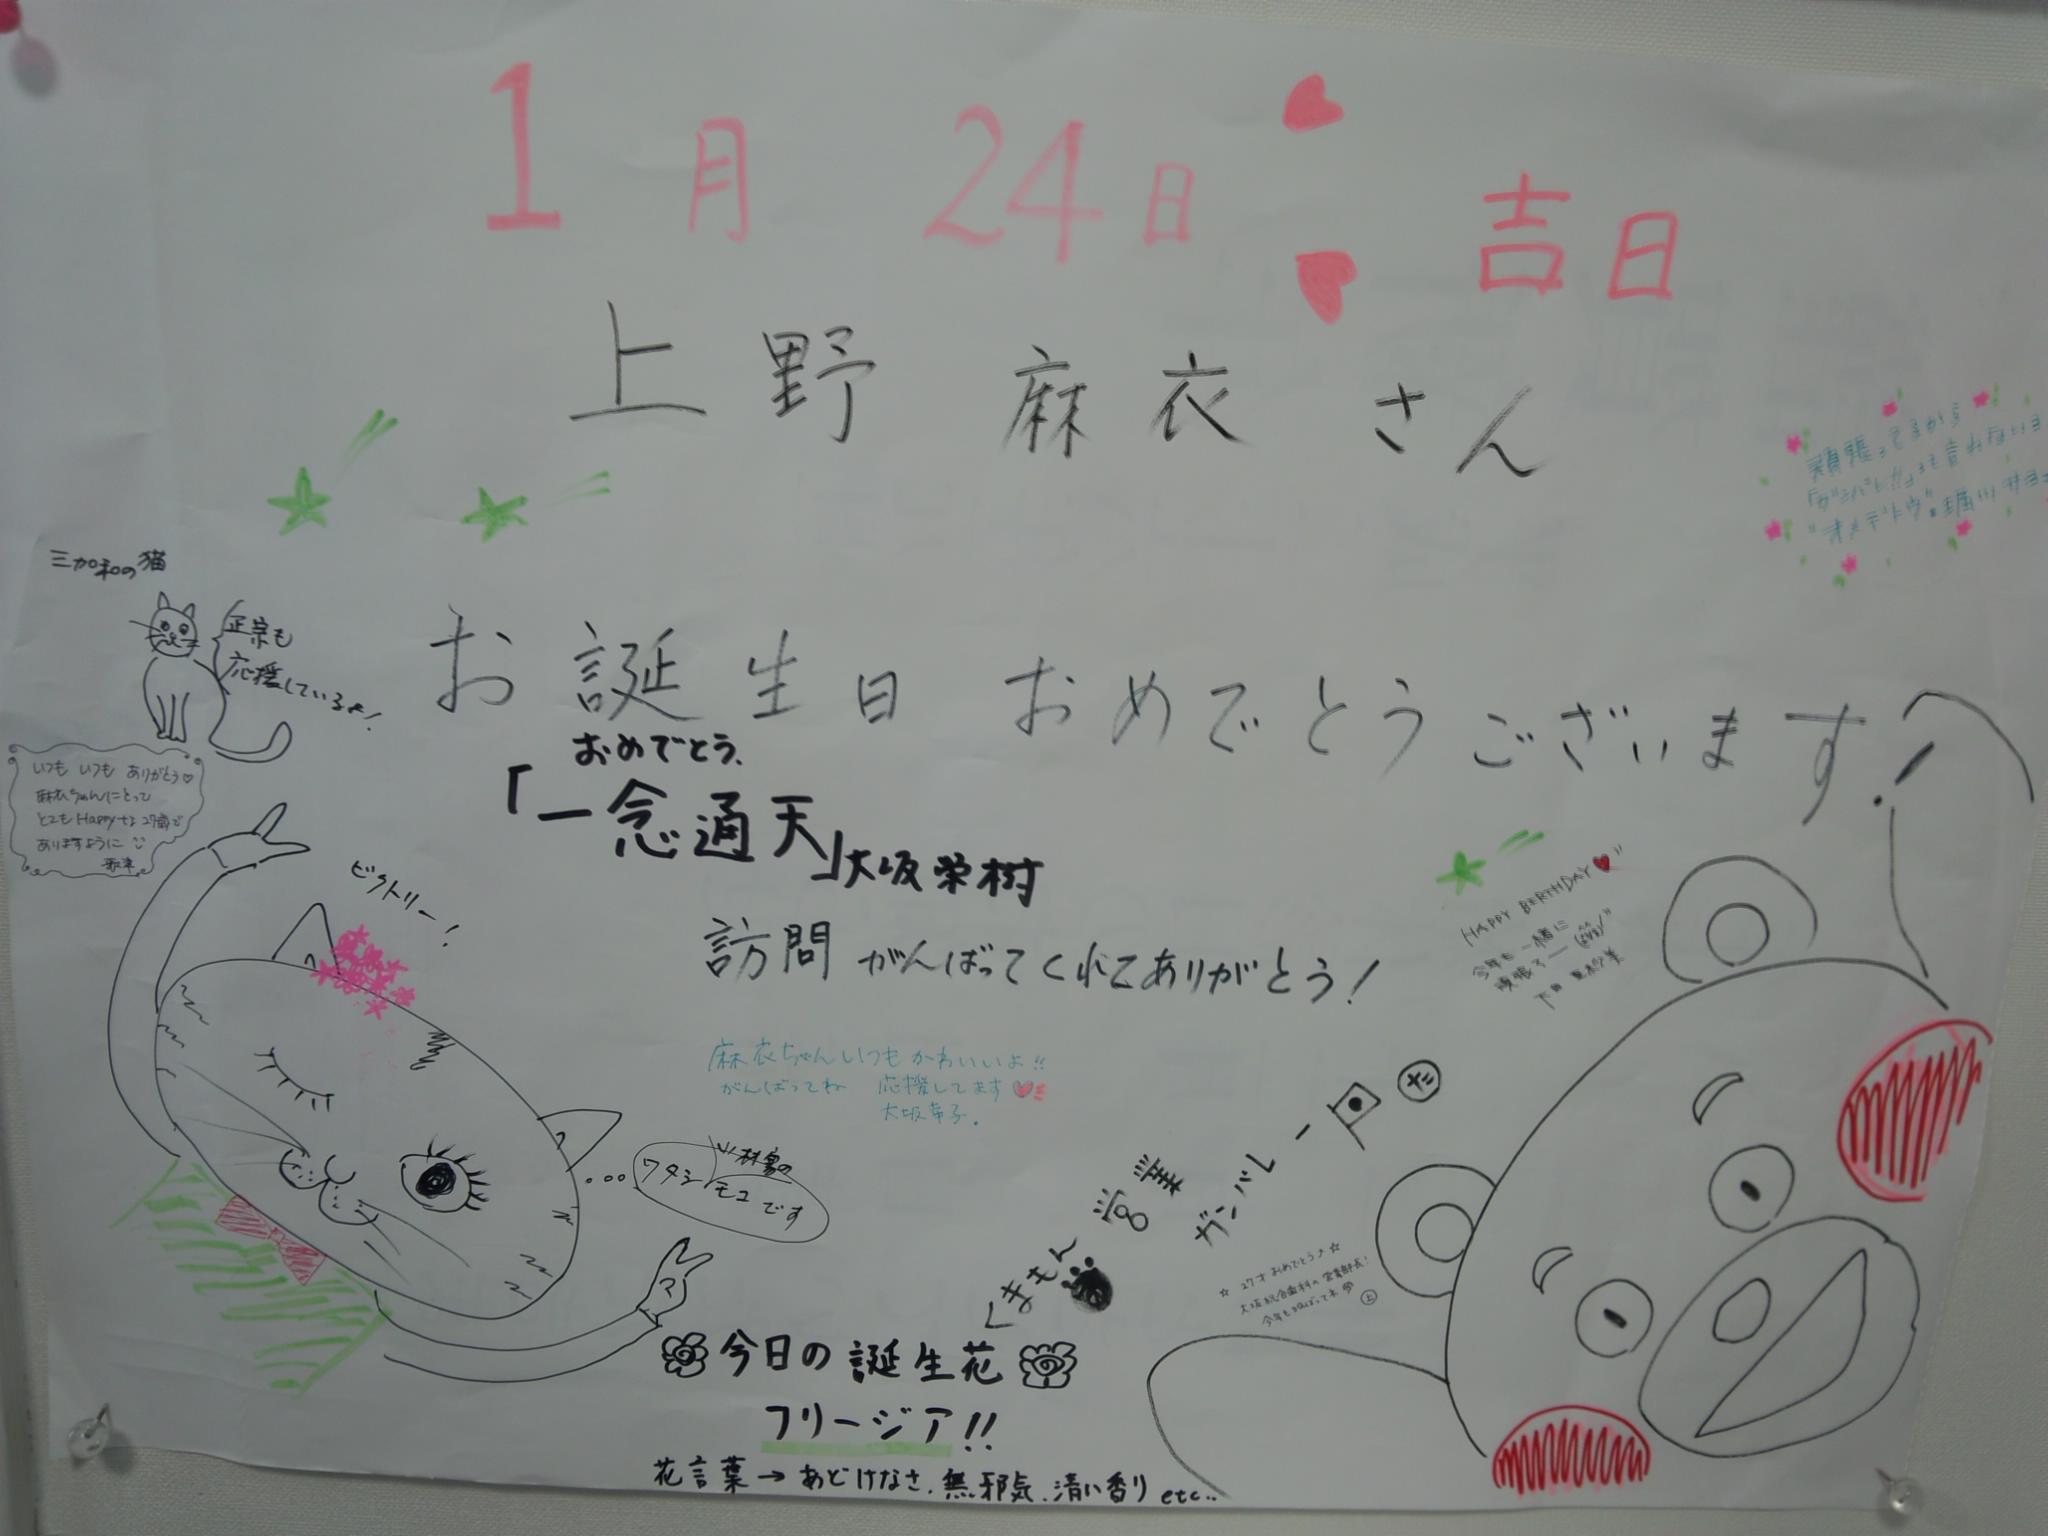 1月 24日 吉日
上野 麻衣 さん
頑張ってるから
「ガンバレ!!」って言わないヨ
"オメデトウ"
三加和の猫
正宗も
応援しているよ!
お誕生日 おめでとうございます!
おめでとう、
「一念通天」大坂栄樹
いつも いつも ありがとう♡
麻衣ちゃんにとって
とてもHappyな27歳で
ありますように
ビクトリー!
訪問 がんばってくれてありがとう!
HAPPY BIRTHDAY♥"
今年も一緒に
頑張ろー
麻衣ちゃんいつもかわいいよ!!
がんばってね 応援してます♥
大坂
ワタシ 林家の
モコです
くまもん 営業 ガンバレー
☆27才おめでとう♪☆
大坂総合歯科の営業部長!
今年も頑ばってネ 上
今日の誕生花
フリージア!!
花言葉→あどけなさ、無邪気、清い香り etc..